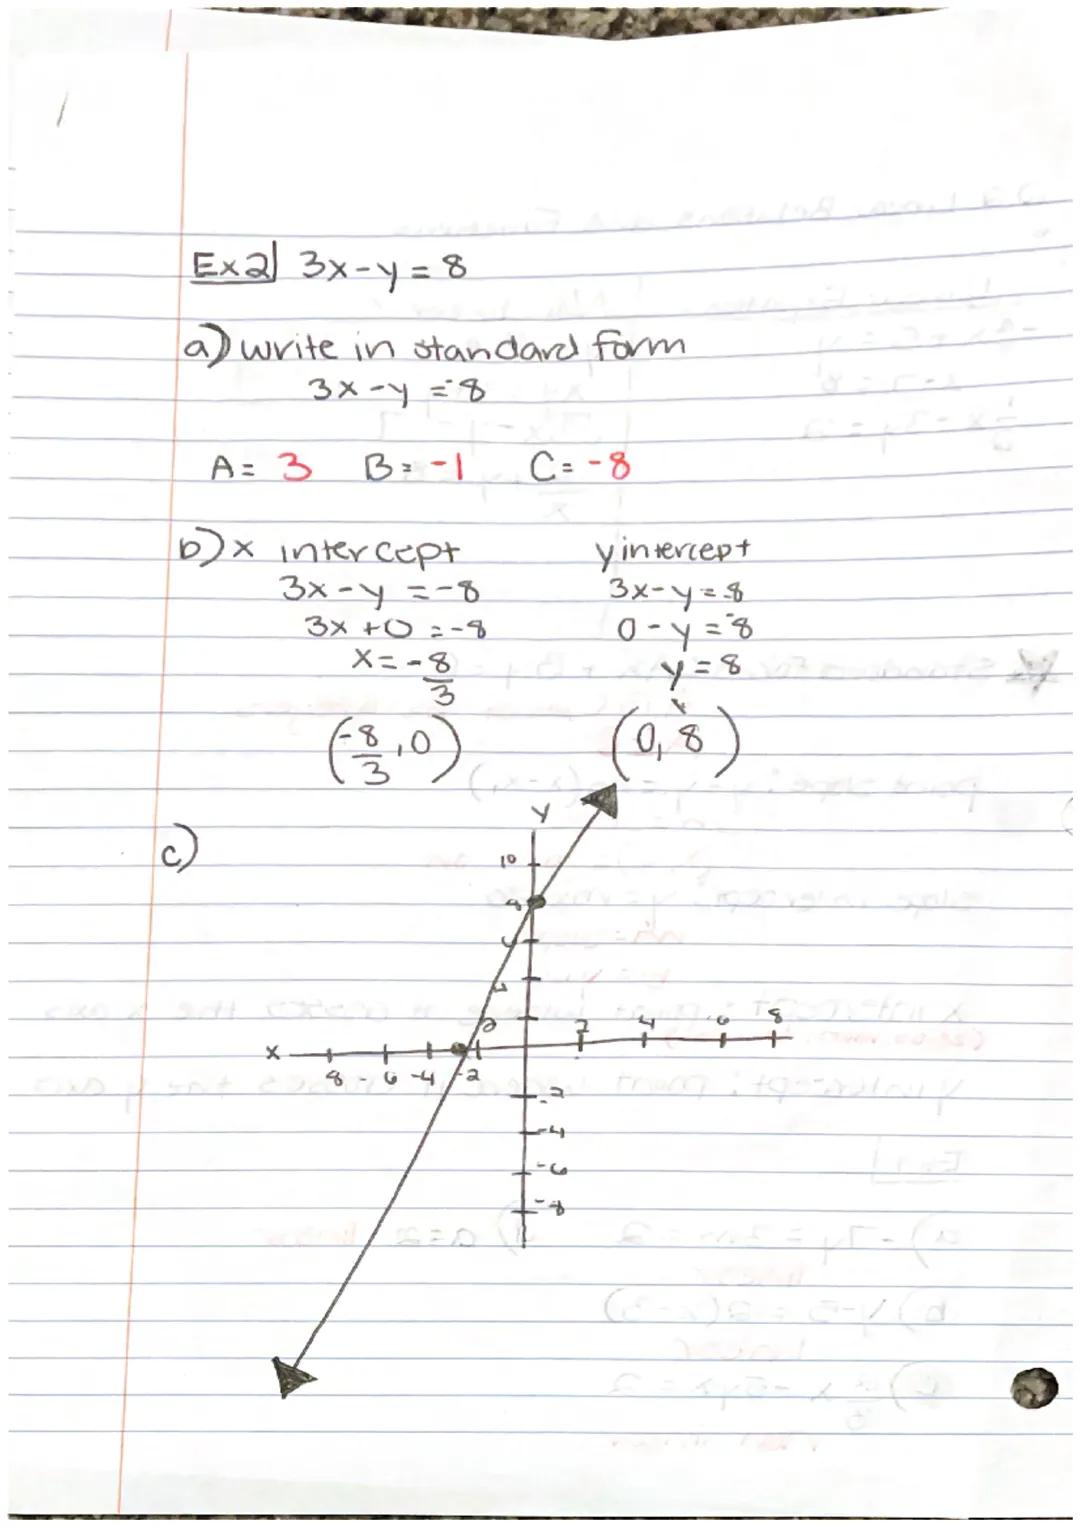 Ex2 3x-y = 8
a) write in standard form
3x-y = -8
A= 3 B= -1 C= -8
b) x intercept y intercept
3x-y = -8 3x-y = -8
3x+0 = -8 0-y = -8
x = -8/3 y = 8
(-8/3, 0) (0, 8)
c)
y
10
8
6
4
2
x
8 -6 -4 -2
2 4 6 8
-2
-4
-6
-8